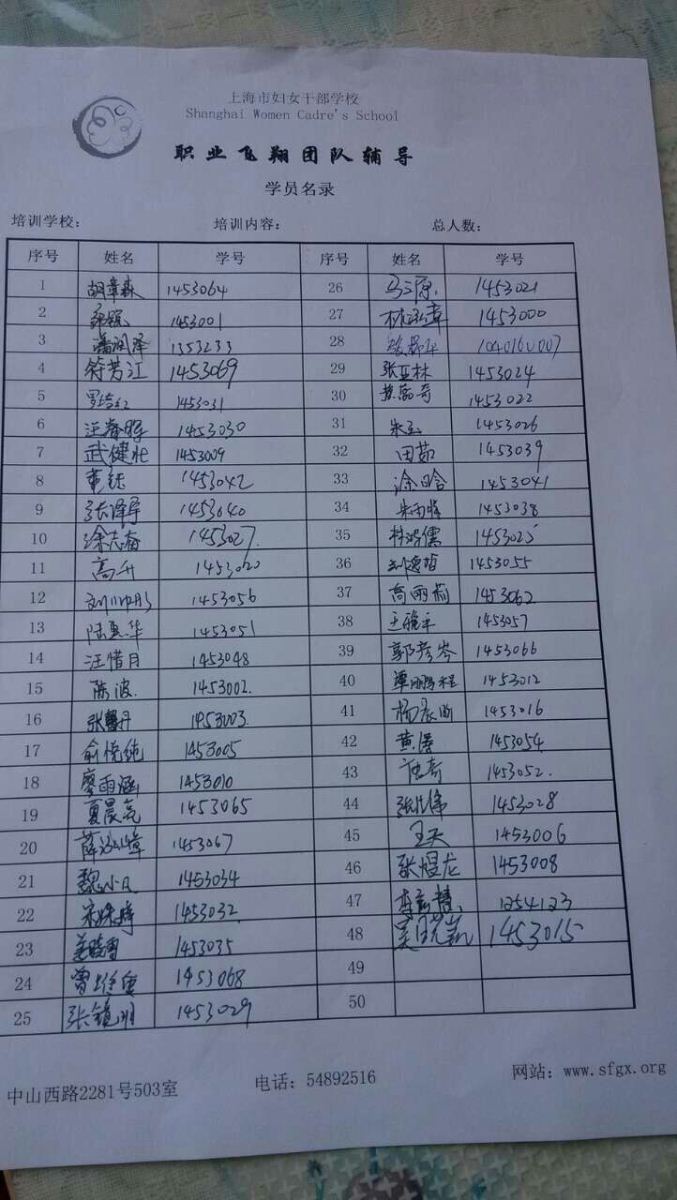 上海市妇女干部学校
Shanghai Women Cadre's School
职业飞翔团队辅导
学员名录
培训学校: 培训内容: 总人数:
序号 姓名 学号 序号 姓名 学号
1 胡章森 1453064 26 1453021
2 1453001 27 1453000
3 潘润泽 1353233 28 104016U007
4 符芳江 1453069 29 张亚林 1453024
5 1453031 30 1453022
6 汪睿晖 1453030 31 朱玉 1453026
7 武健壮 1453009 32 田茹 1453039
8 1453042 33 涂晗 1453041
9 张泽宇 1453040 34 1453038
10 涂志奋 1453027. 35 林鸿儒 1453025
11 高升 1453020 36 1453055
12 1453056 37 乔雨莉 1453062
13 陆惠华 1453051 38 1453057
14 汪惜月 1453048 39 郭彦岑 1453066
15 陈波 1453002. 40 覃鹏程 1453012
16 1453003. 41 1453016
17 俞悦纯 1453005 42 1453054
18 廖雨涵 1453010 43 唐奇 1453052.
19 夏晨亮 1453065 44 1453028
20 1453067 45 王天 1453006
21 魏小凡 1453034 46 张煜龙 1453008
22 1453032. 47 1254123
23 1453035 48 1453015
24 1453068 49
25 张镜明 1453029 50
中山西路2281号503室 电话: 54892516 网站: www.sfgx.org